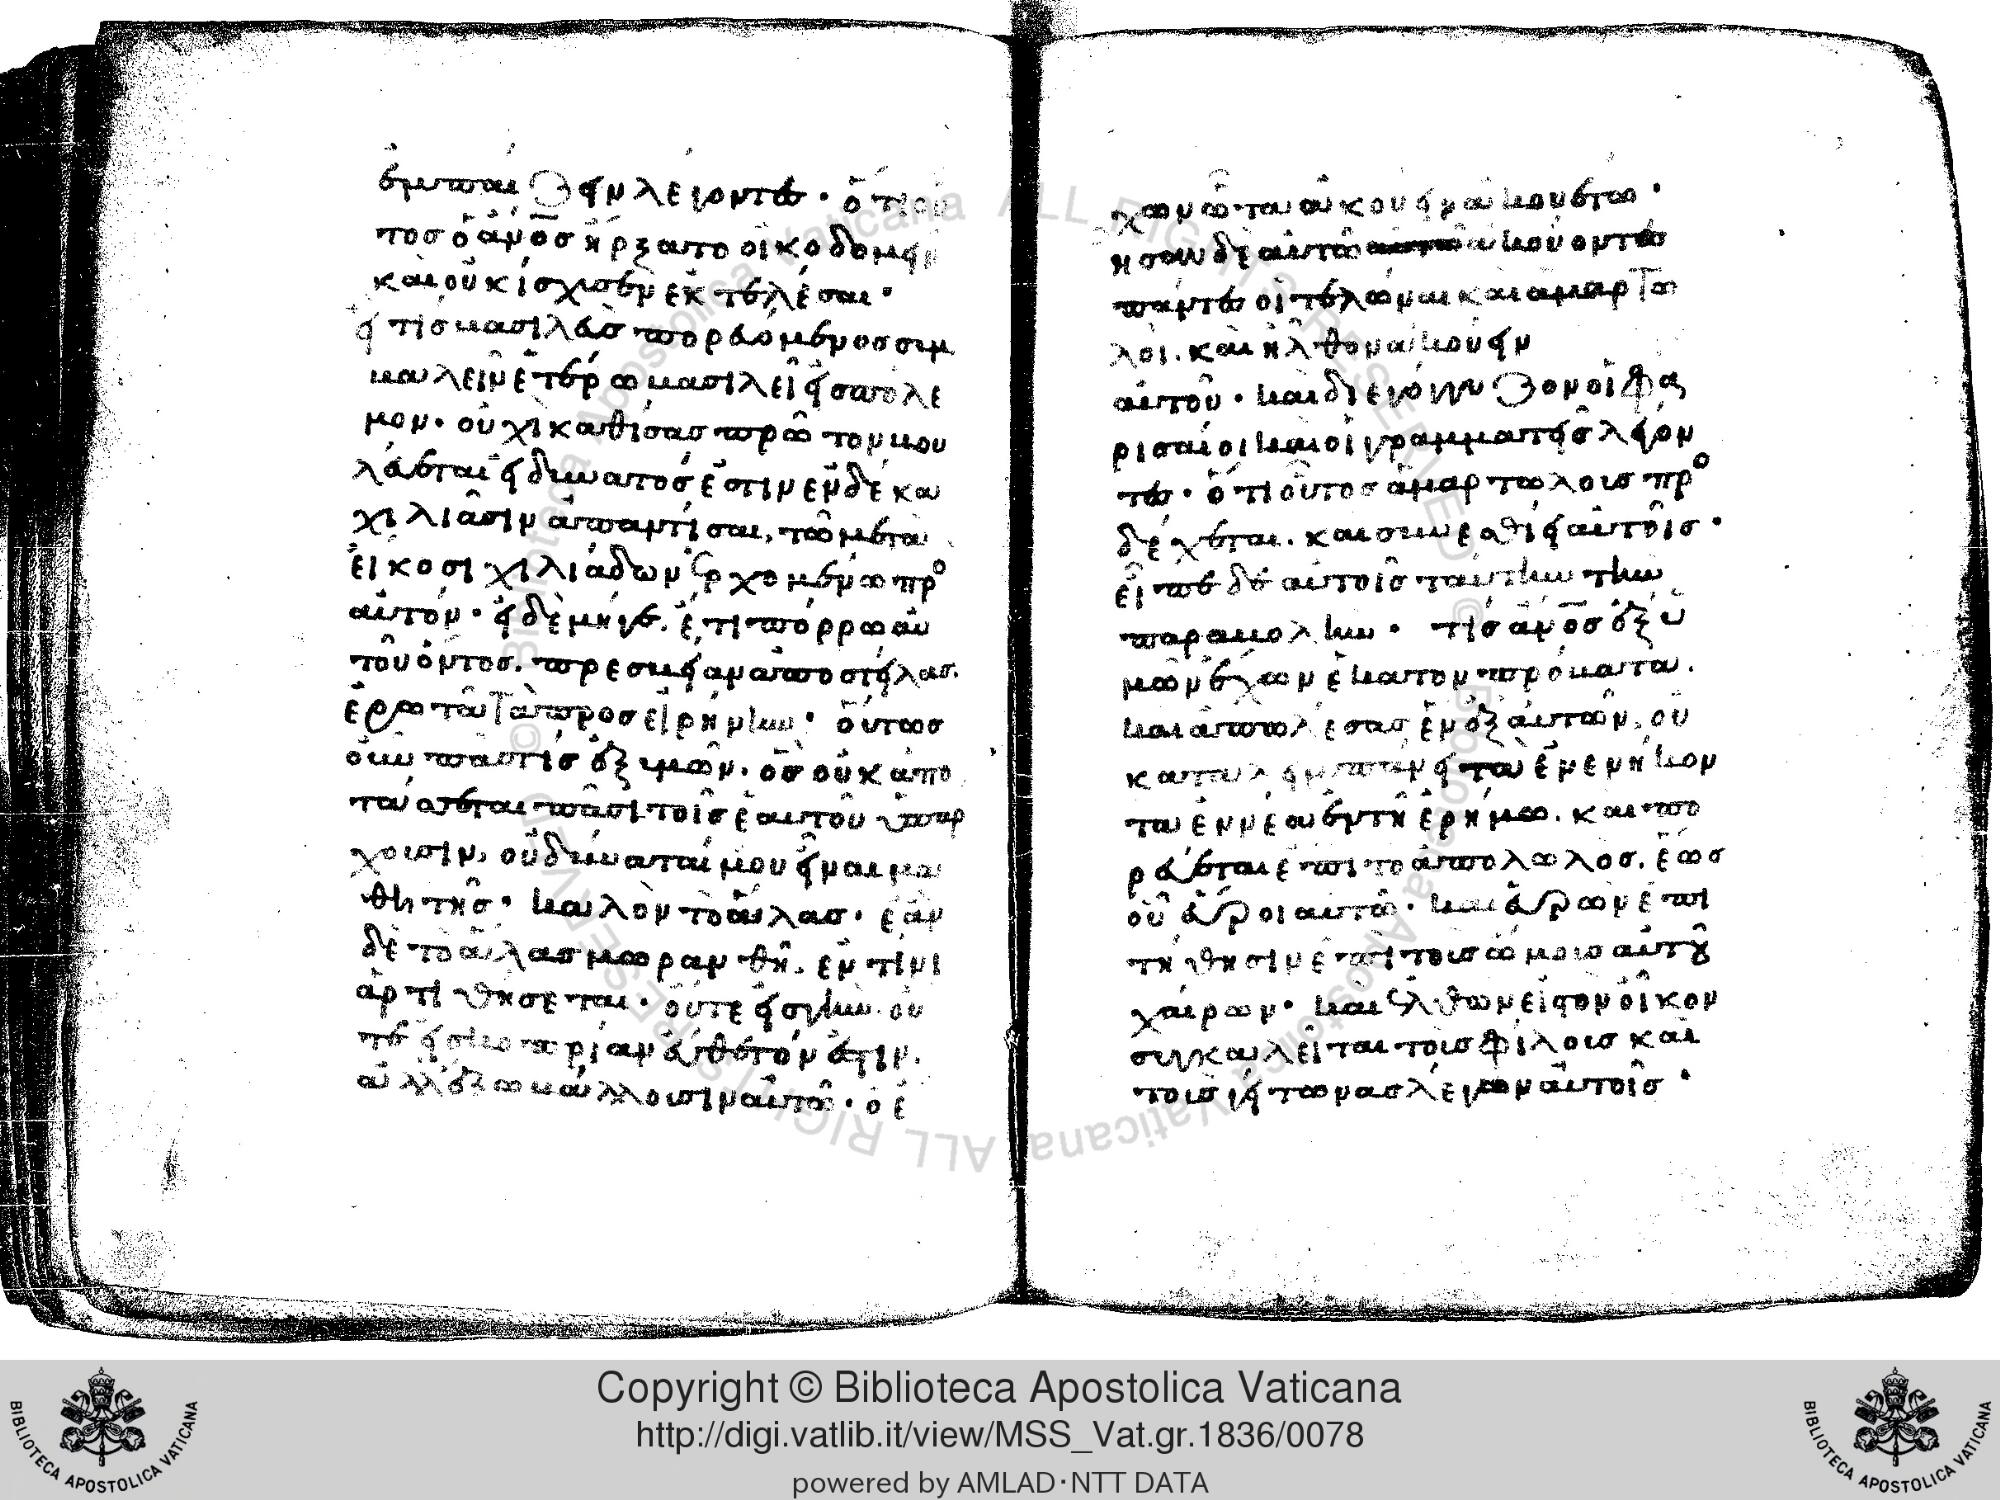 ἐμπαίζειν λέγοντες · ὅτι οὗ
τος ὁ ἄνος ἤρξατο οἰκοδομεῖν
καὶ οὐκ ἴσχυσεν ἐκτελέσαι ·
ἢ τίς βασιλεὺς πορευόμενος συμ
βαλεῖν ἑτέρω βασιλεῖ εἰς πόλε
μον · οὐχὶ καθίσας πρῶτον βου
λεύεται εἰ δυνατός ἐστιν ἐν δέκα
χιλιάσιν ἀπαντῆσαι, τῶ μετὰ
εἴκοσι χιλιάδων ἐρχομένω πρὸ
αὐτόν · εἰ δὲ μήγε. ἔτι πόρρω αὐ
τοῦ ὄντος. πρεσβείαν ἀποστείλας.
ἐρωτᾶ τὰ πρὸς εἰρήνην · οὕτως
οὖν πᾶς τίς ἐξ ὑμῶν. ὃς οὐκ ἀπο
τάσσεται πᾶσι τοῖς ἑαυτοῦ ὑπάρ
χουσιν, οὐ δύναταί μου εἶναι μα
θητής · καλὸν τὸ ἅλας · ἐὰν
δὲ τὸ ἅλας μωρανθῆ. ἐν τίνι
ἀρτιθήσεται · οὔτε εἰς γῆν. οὔ
τε εἰς κοπρίαν εὔθετόν ἐστιν.
ἀλλ' ἔξω βάλλουσιν αὐτὸ · ὁ ἔ
χων ὦτα ἀκούειν ἀκουέτω ·
ἦσαν δὲ αὐτῶ ἀκούοντες
πάντες οἱ τελῶναι καὶ ἁμαρτω
λοί. καὶ ἦλθον ἀκούειν
αὐτοῦ · καὶ διεγόγγυζον οἱ φα
ρισαίοι καὶ οἱ γραμματεῖς λέγον
τες · ὅτι οὗτος ἁμαρτωλοὺς προ
δέχεται. καὶ συνεσθίει αὐτοῖς ·
εἶπε δὲ αὐτοῖς ταύτην τὴν
παραβολὴν · τίς ἄνος ἐξ ὑ
μῶν ἔχων ἑκατὸν πρόβατα.
καὶ ἀπολέσας ἓν ἐξ αὐτῶν, οὐ
καταλιμπάνει τὰ ἐνενήκον
τα ἐννέα ἐν τῆ ἐρήμω. καὶ πο
ρεύεται ἐπὶ τὸ ἀπολωλός. ἕως
οὗ εὕροι αὐτὸ · καὶ εὑρὼν ἐπι
τήθησιν ἐπὶ τοὺς ὤμους αὐτοῦ
χαίρων · καὶ ἐλθὼν εἰς τὸν οἶκον
συγκαλεῖται τοὺς φίλους καὶ
τοὺς γείτωνας λέγων αὐτοῖς ·
Copyright © Biblioteca Apostolica Vaticana
http://digi.vatlib.it/view/MSS_Vat.gr.1836/0078
powered by AMLAD·NTT DATA
BIBLIOTECA APOSTOLICA VATICANA
BIBLIOTECA APOSTOLICA VATICANA